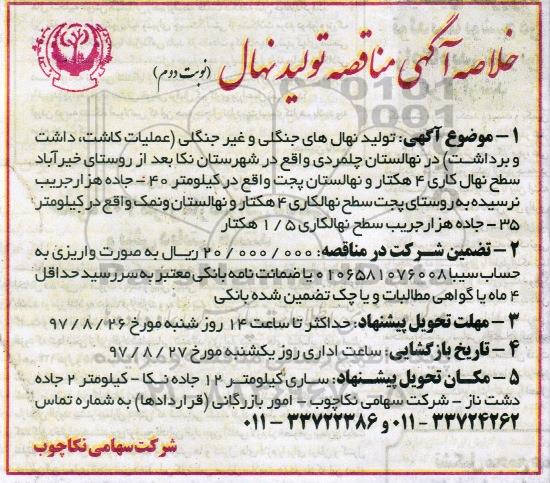 خلاصه آگهی مناقصه تولید نهال (نوبت دوم)
۱ - موضوع آگهی: تولید نهال های جنگلی و غیر جنگلی (عملیات کاشت، داشت
و برداشت) در نهالستان چلمردی واقع در شهرستان نکا بعد از روستای خیرآباد
سطح نهال کاری ۴ هکتار و نهالستان پجت واقع در کیلومتر ۴۰ - جاده هزارجریب
نرسیده به روستای پجت سطح نهالکاری ۴ هکتار و نهالستان ونمک واقع در کیلومتر
۳۵ - جاده هزارجریب سطح نهالکاری ۱/۵ هکتار
۲ - تضمین شرکت در مناقصه: ۲۰/۰۰۰/۰۰۰ ریال به صورت واریزی به
حساب سیبا ۰۱۰۶۵۸۱۰۷۶۰۰۸ یا ضمانت نامه بانکی معتبر به سررسید حداقل
۴ ماه یا گواهی مطالبات و یا چک تضمین شده بانکی
۳ - مهلت تحویل پیشنهاد: حداکثر تا ساعت ۱۴ روز شنبه مورخ ۹۷/۸/۲۶
۴ - تاریخ بازگشایی: ساعت اداری روز یکشنبه مورخ ۹۷/۸/۲۷
۵ - مکان تحویل پیشنهاد: ساری کیلومتر ۱۲ جاده نکا - کیلومتر ۲ جاده
دشت ناز - شرکت سهامی نکاچوب - امور بازرگانی (قراردادها) به شماره تماس:
۰۱۱-۳۳۷۲۴۲۶۲ و ۰۱۱-۳۳۷۲۲۳۸۶
شرکت سهامی نکاچوب